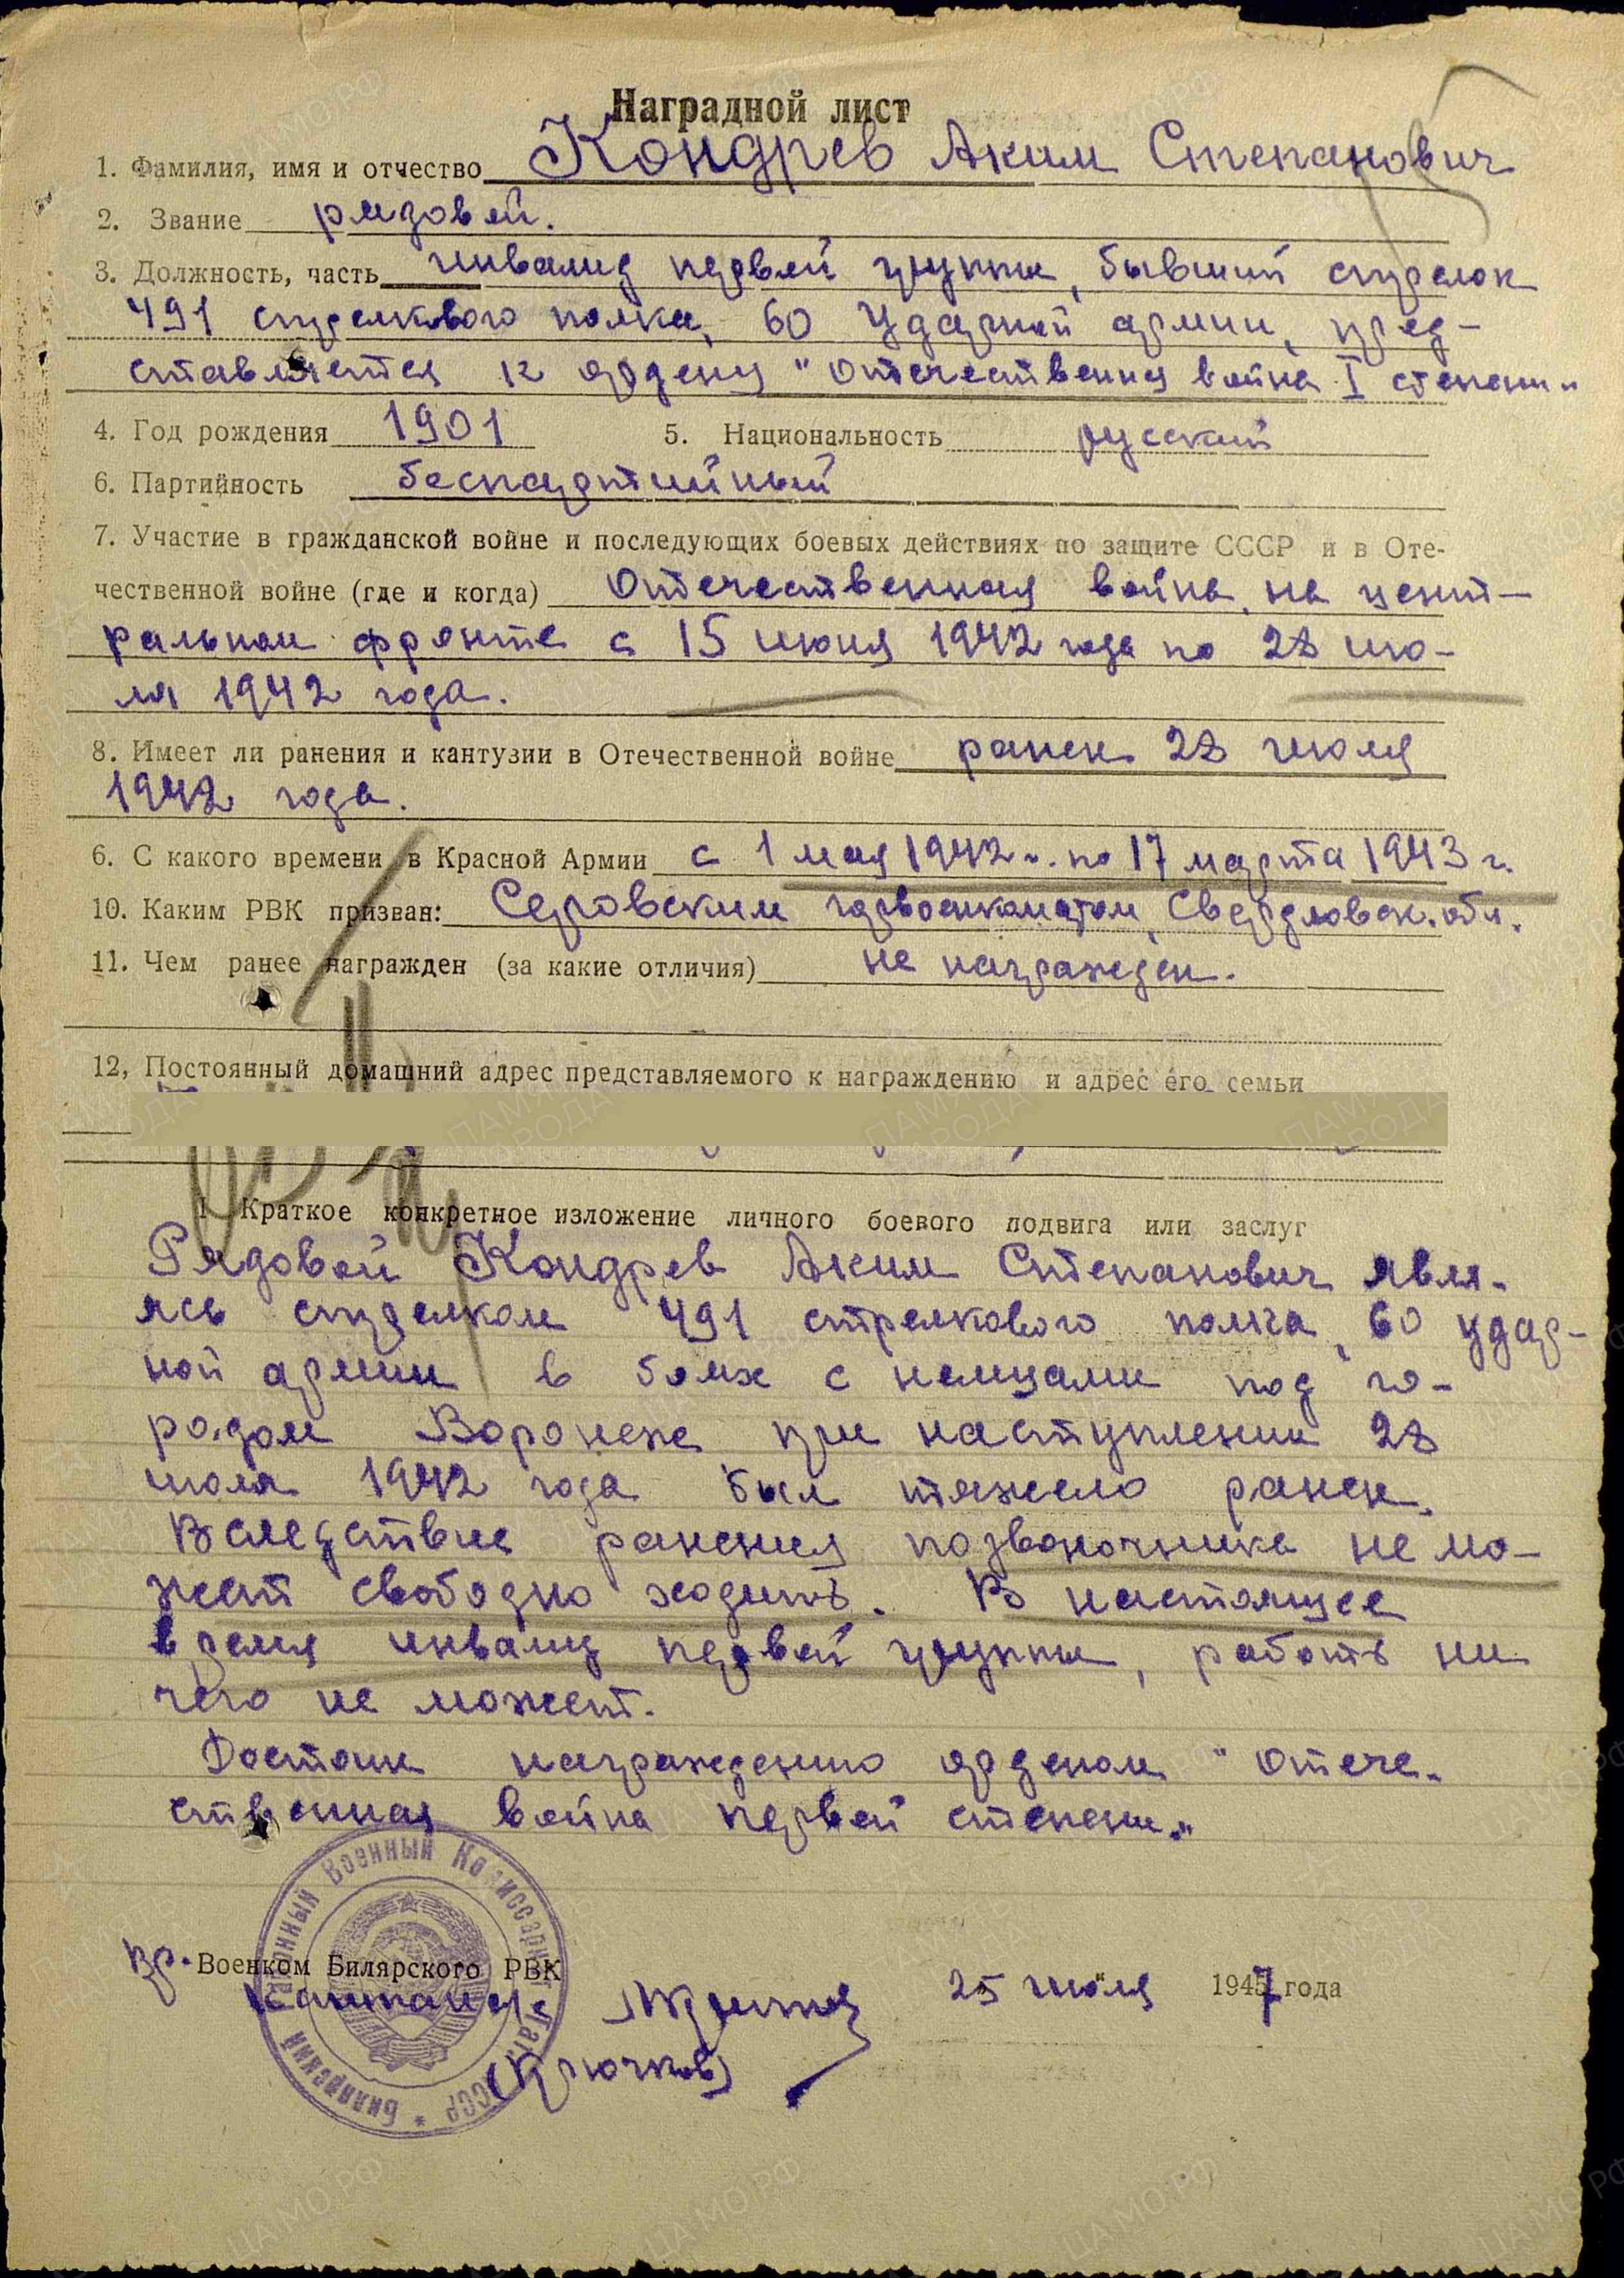 Наградной лист
1. Фамилия, имя и отчество Кондрев Аким Степанович
2. Звание рядовой.
3. Должность, часть инвалид первой группы, бывший стрелок
491 стрелкового полка, 60 Ударной армии, пред-
ставляется к ордену "Отечественная война I степени"
4. Год рождения 1901 5. Национальность русский
6. Партийность беспартийный
7. Участие в гражданской войне и последующих боевых действиях по защите СССР и в Оте-
чественной войне (где и когда) Отечественная война, на цент-
ральном фронте с 15 июня 1942 года по 28 ию-
ля 1942 года.
8. Имеет ли ранения и кантузии в Отечественной войне ранен 28 июля
1942 года.
6. С какого времени в Красной Армии с 1 мая 1942 г. по 17 марта 1943 г.
10. Каким РВК призван: Серовским горвоенкоматом, Свердловск. обл.
11. Чем ранее награжден (за какие отличия) не награжден.
12, Постоянный домашний адрес представляемого к награждению и адрес его семьи
I Краткое конкретное изложение личного боевого подвига или заслуг
Рядовой Кондрев Аким Степанович явля-
ясь стрелком 491 стрелкового полка, 60 удар-
ной армии в боях с немцами под го-
родом Воронеже при наступлении 28
июля 1942 года был тяжело ранен.
Вследствие ранения позвоночника не мо-
жет свободно ходить. В настоящее
время инвалид первой группы, работь ни
чего не может.
Достоин награждению орденом "Отече-
ственная война первой степени."
Вр. Военком Билярского РВК
Капитан 25 июля 1947 года
(Крючков)
Билярский Районный Военный Комиссариат Тат. ССР *
ПАМЯТЬ НАРОДА
ЦА МО РФ